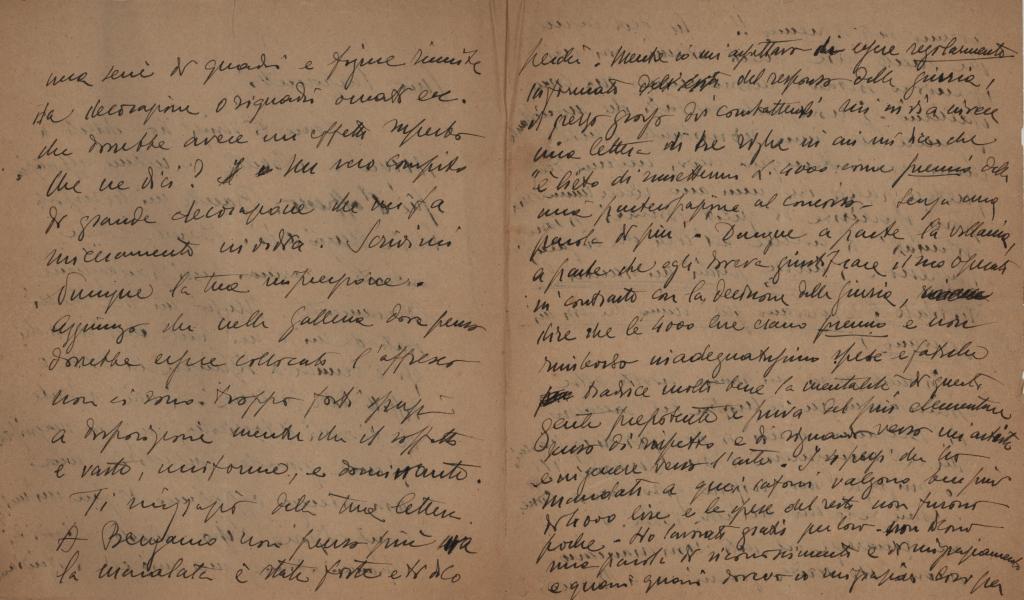 una serie di quadri e figure riunite
da decorazione o riquadri ornati ecc.
che dovrebbe avere un effetto superbo
Che ne dici? Un vero compito
di grande decorazione che mi fa
Scrivimi
dunque la tua impressione.
Aggiungo che nella Galleria dove penso
dovrebbe essere collocato l'affresco
non ci sono troppo forti spazi
a disposizione mentre che il soffitto
è vasto, uniforme, e dominante.
Ti ringrazio della tua lettera.
A Bergamo non penso più ma
la manata è stata forte e ti dico
perché. Mentre io mi aspettavo di essere regolarmente
informato del responso della giuria,
il pezzo grosso dei combattenti mi invia invece
una lettera di tre righe in cui mi dice che
"è lieto di rimettermi L. 4000 come premio della
mia partecipazione al concorso - senza una
parola di più. Dunque a parte la villania,
a parte che egli doveva giustificare il suo operato
in contrasto con la decisione della giuria,
dire che le 4000 lire siano premio e non
rimborso inadeguatissimo spese e fatiche
tradisce molto bene la mentalità di questa
gente prepotente e priva del più elementare
senso di rispetto e di riguardo verso un artista
e in genere verso l'arte. I bozzetti che ho
mandato a quei valgono ben più
di 4000 lire e le spese del resto non furono
poche. Ho lavorato gratis per loro - non dicono
una parola di riconoscimento e di ringraziamento
e quasi quasi dovevo io ringraziare loro per